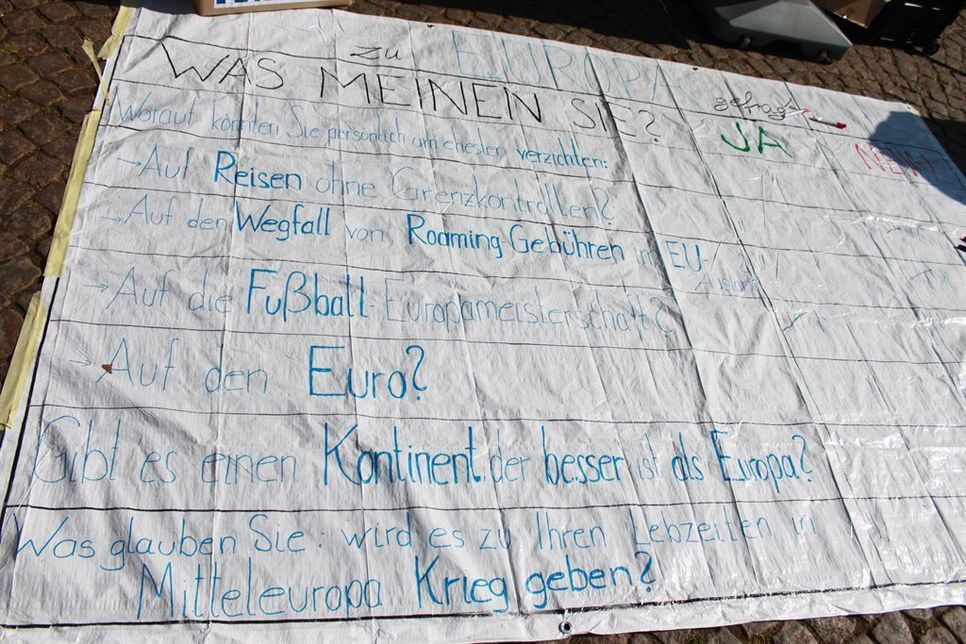 zu EUROPA gefragt
WAS MEINEN SIE?
JA NEIN
Worauf könnten Sie persönlich am ehesten verzichten:
→ Auf Reisen ohne Grenzkontrollen?
→ Auf den Wegfall von Roaming-Gebühren im EU-
→ Auf die Fußball-Europameisterschaft?
→ Auf den Euro?
Gibt es einen Kontinent der besser ist als Europa?
Was glauben Sie: wird es zu Ihren Lebzeiten in
Mitteleuropa Krieg geben?